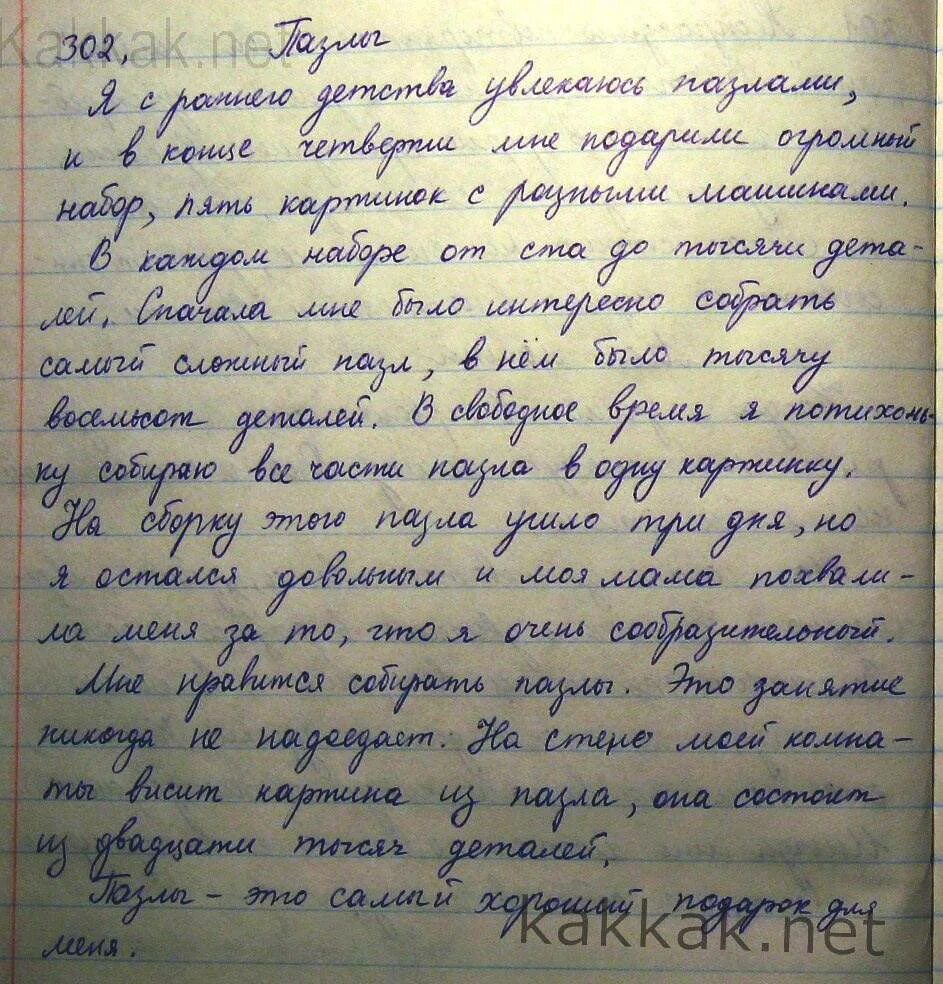 Kakkak.net
302, Пазлы
Я с раннего детства увлекаюсь пазлами,
и в конце четверти мне подарили огромный
набор, пять картинок с разными машинами.
В каждом наборе от ста до тысячи дета-
лей. Сначала мне было интересно собрать
самый сложный пазл, в нём было тысячу
восемьсот деталей. В свободное время я потихонь-
ку собираю все части пазла в одну картинку.
На сборку этого пазла ушло три дня, но
я остался довольным и моя мама похвали-
ла меня за то, что я очень сообразительный.
Мне нравится собирать пазлы. Это занятие
никогда не надоедает. На стене моей комна-
ты висит картина из пазла, она состоит
из двадцати тысяч деталей.
Пазлы – это самый хороший подарок для
меня.
kakkak.net